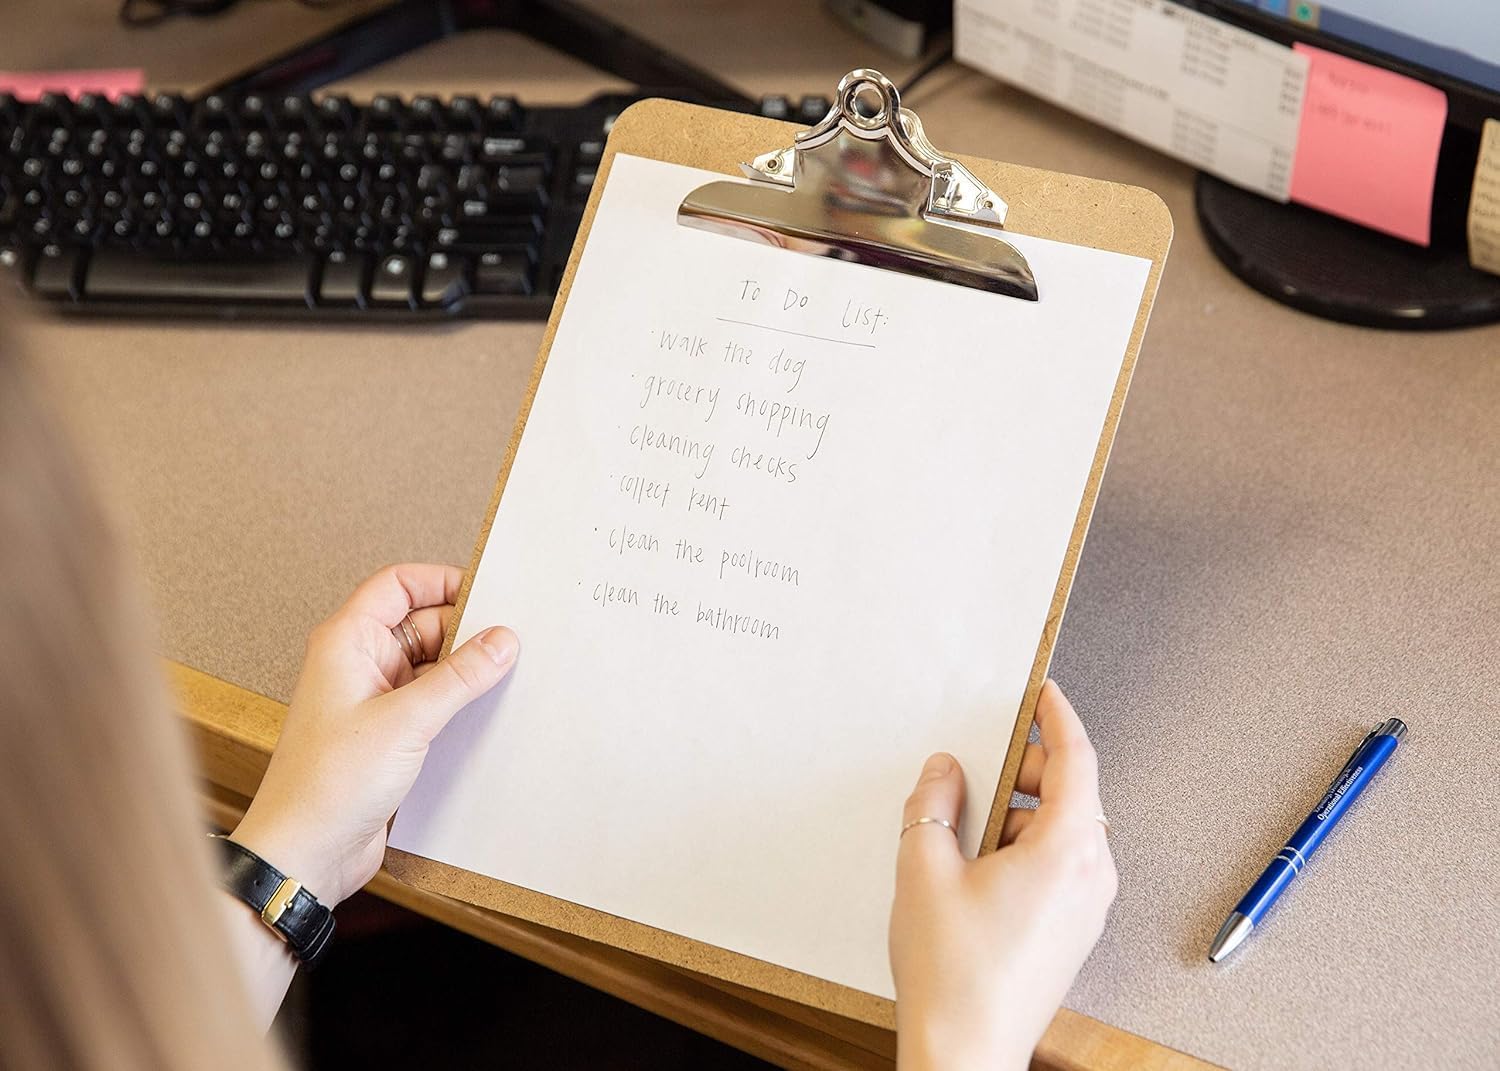 To Do List:
· walk the dog
· grocery shopping
· cleaning checks
· collect rent
· clean the poolroom
· clean the bathroom
Operational Effectiveness